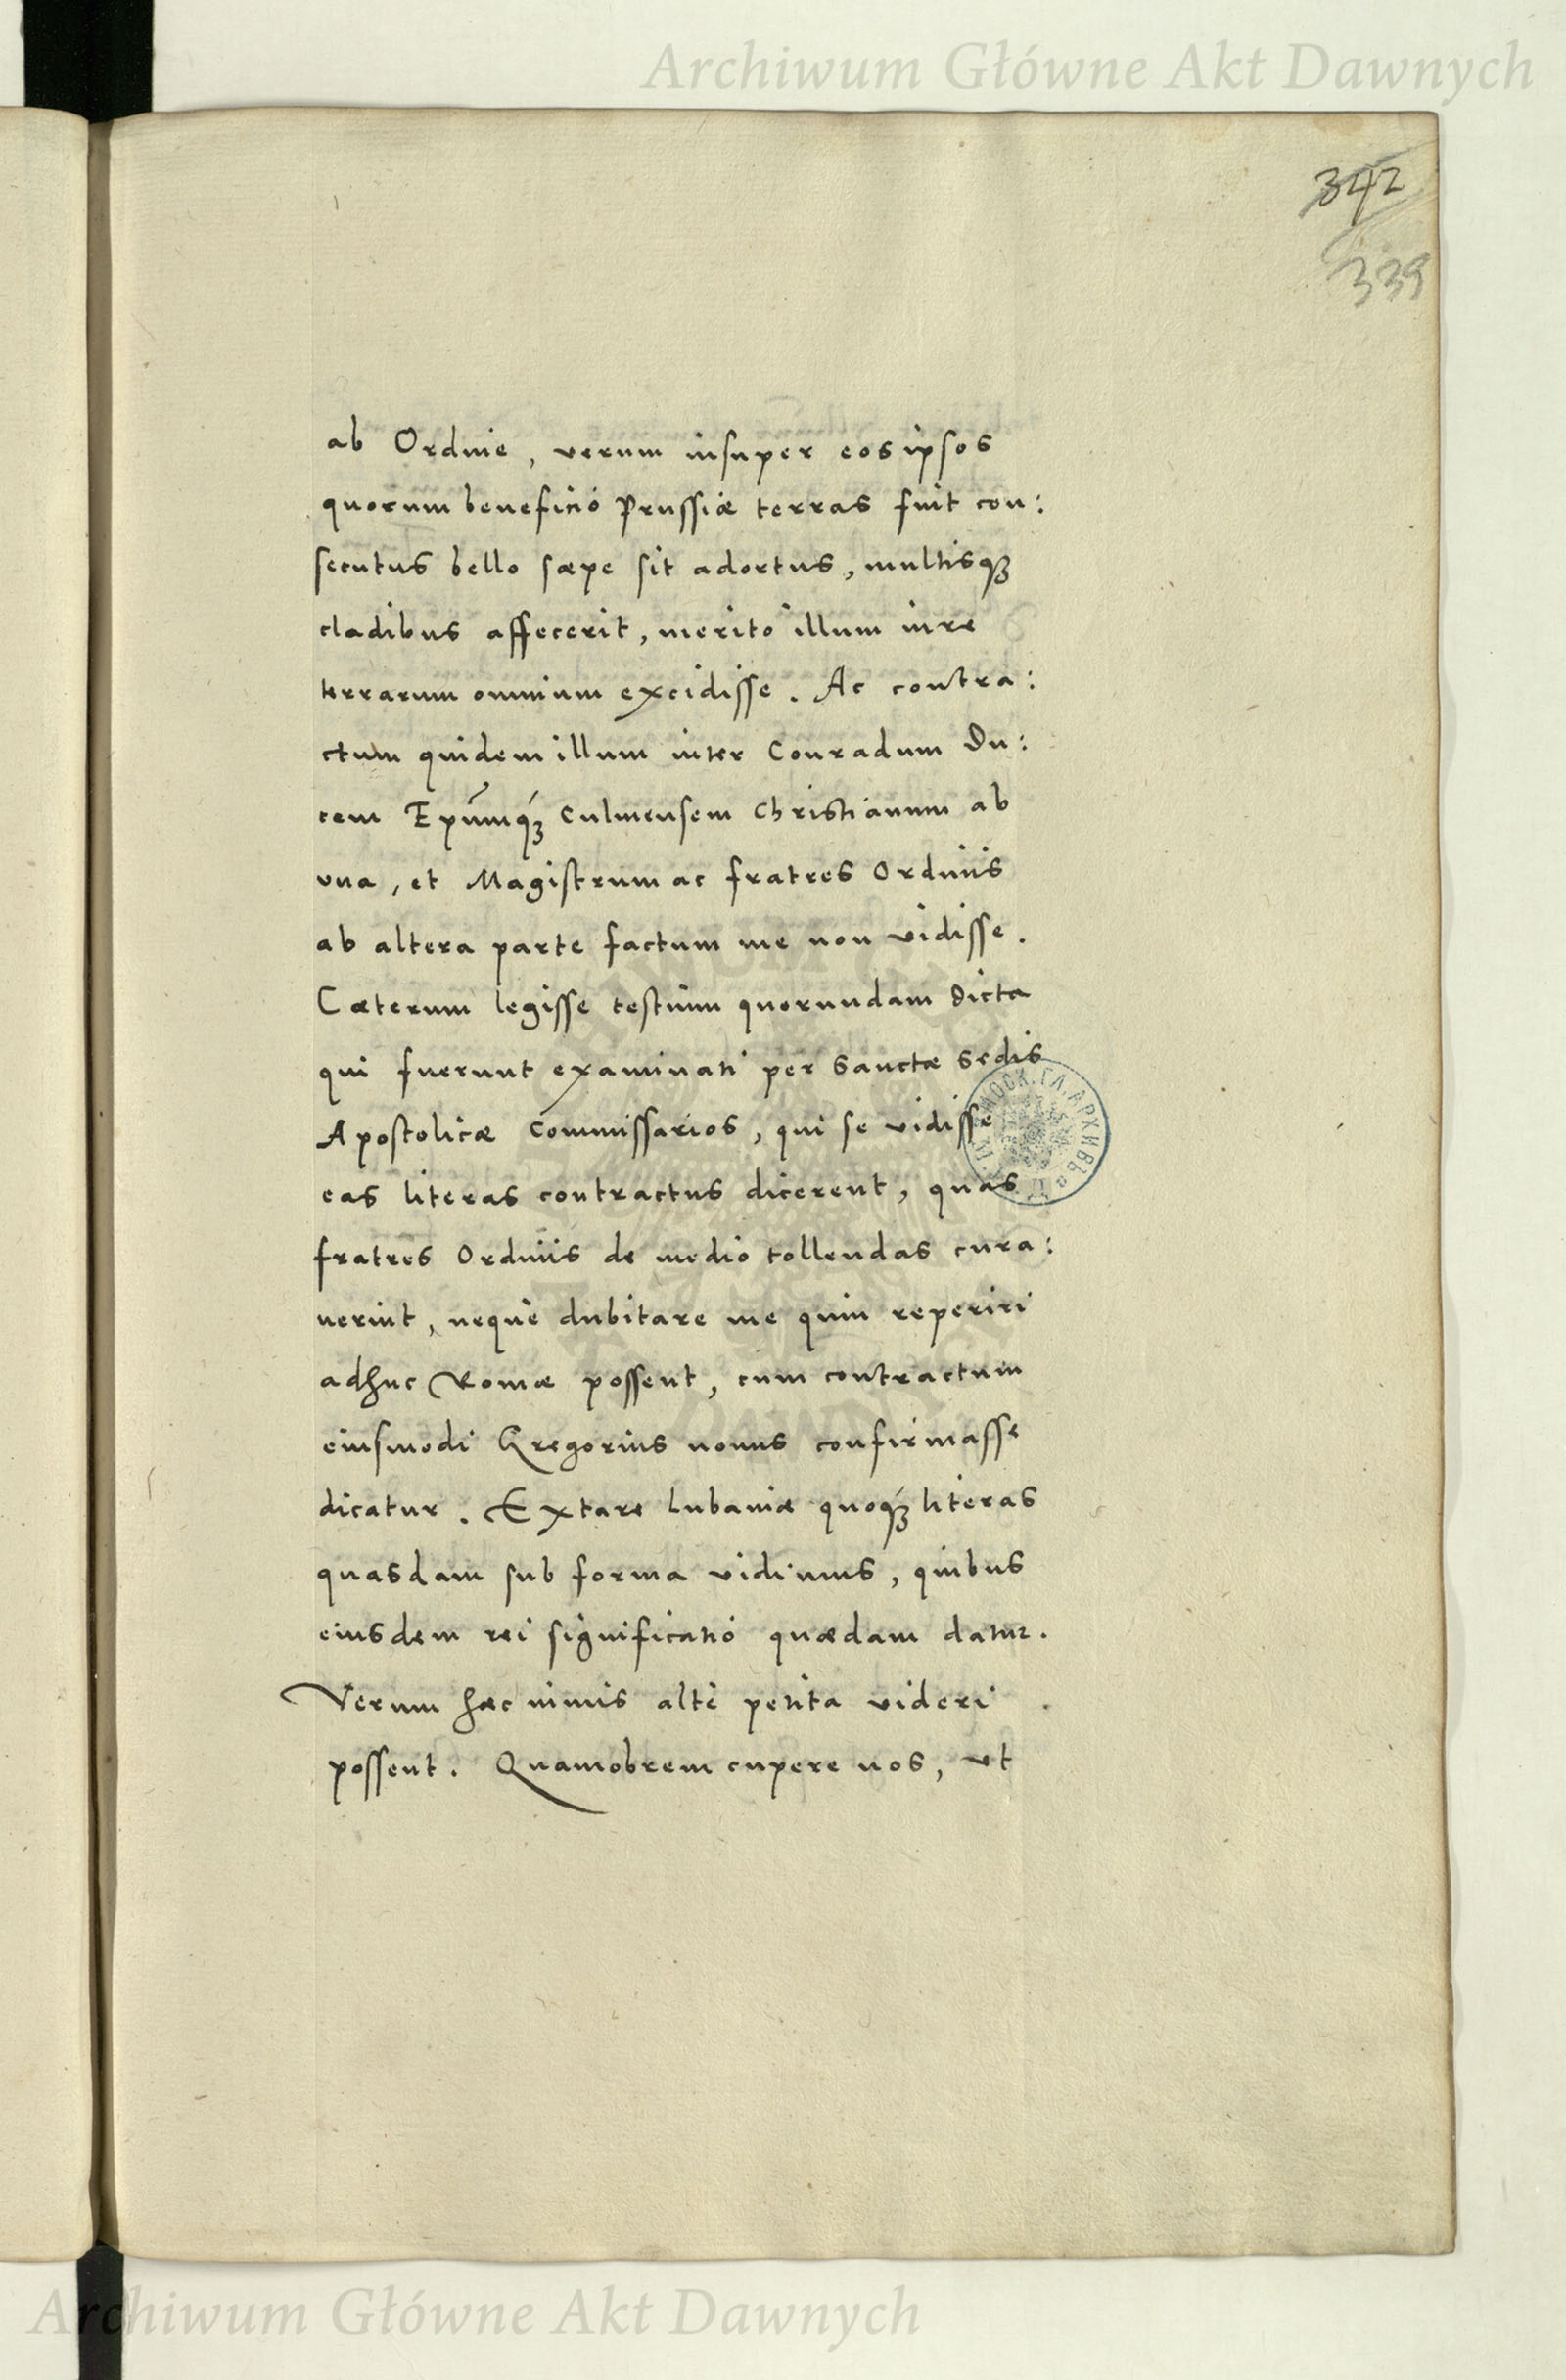 Archiwum Główne Akt Dawnych
342
339
ab Ordine, verum insuper eos ipsos
quorum beneficio Prussiæ terras fuit con:
secutus bello sæpe sit adortus, multisq3
cladibus affecerit, merito illum iure
terrarum omnium excidisse. Ac contra:
ctum quidem illum inter Conradum Du:
cem Epūmq3 Culmensem Christianum ab
vna, et Magistrum ac fratres Ordinis
ab altera parte factum me non vidisse.
Cæterum legisse testium quorundam dicta
qui fuerunt examinati per Sanctæ Sedis
Apostolicæ Commissarios, qui se vidisse
eas literas contractus dicerent, quas
fratres Ordinis de medio tollendas cura:
uerint, neque dubitare me quin reperiri
adhuc Romæ possent, cum contractum
eiusmodi Gregorius nonus confirmasse
dicatur. Extare Lubaviæ quoq3 literas
quasdam sub forma vidimus, quibus
eiusdem rei significatio quædam datur.
Verum hæc nimis altè petita videri
possent. Quamobrem cupere nos, vt
Archiwum Główne Akt Dawnych